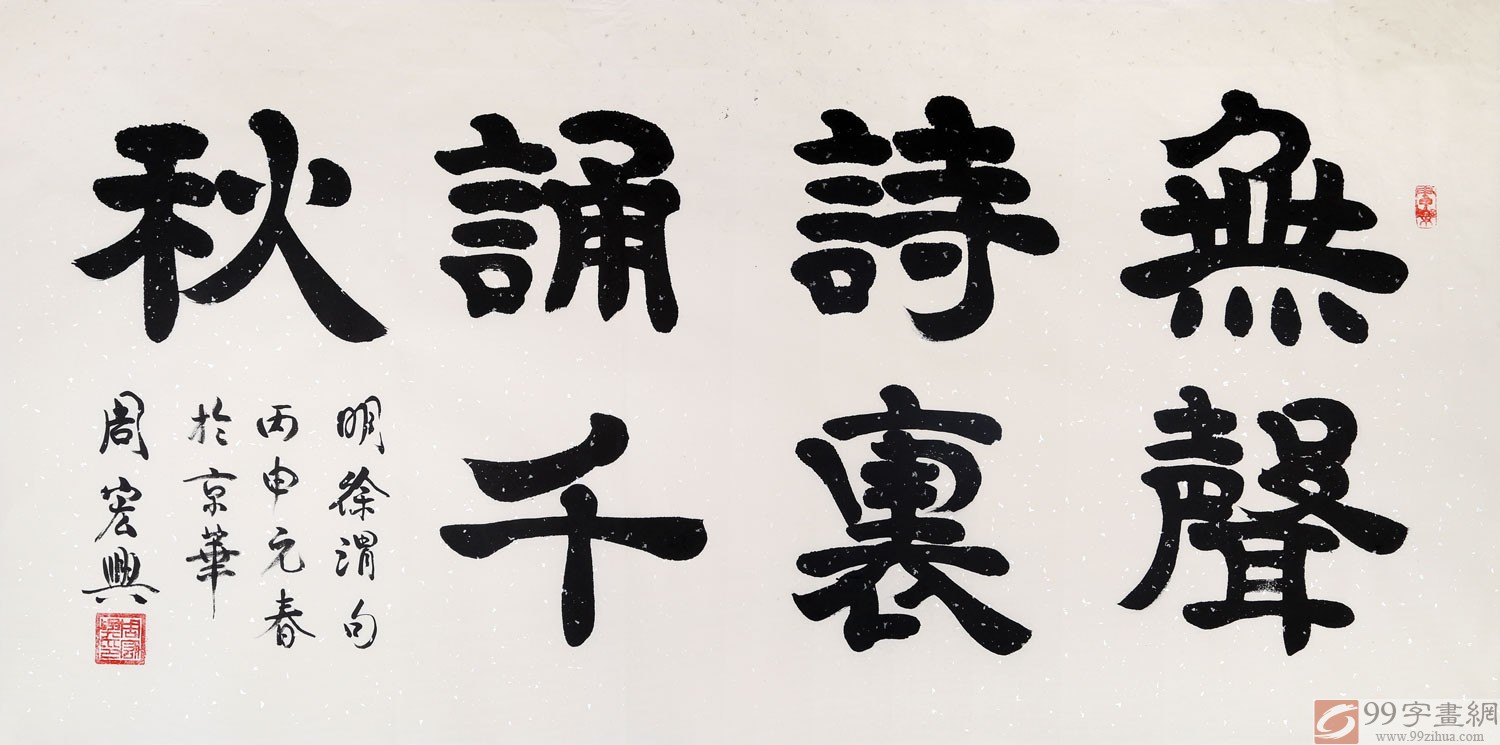 無聲
詩裏
誦千
秋
明徐渭句
丙申元春
於京華
周宏興
99字畫網
www.99zihua.com